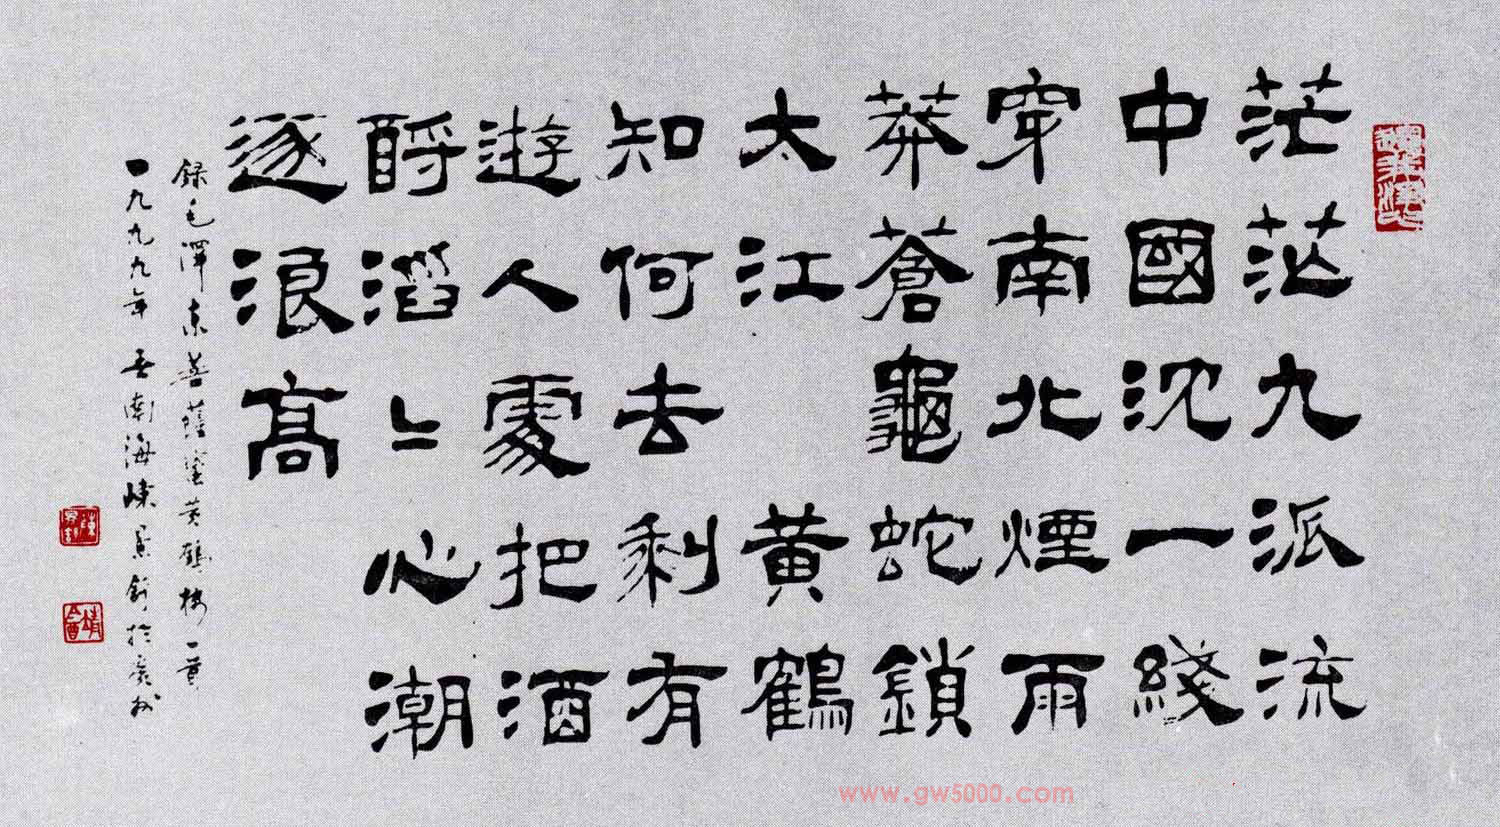 茫茫九派流
中國沈一綫
穿南北煙雨
莽蒼龜蛇鎖
太江 黃鶴
知何去剩有
遊人處把酒
酹滔〻心潮
逐浪高
錄毛澤東菩薩蠻黃鶴樓一
一九九九年 南海陳景舒於廣州
www.gw5000.com